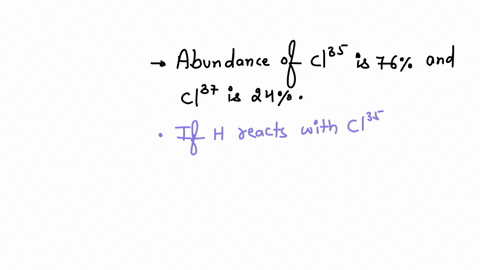 → Abundance of Cl³⁵ is 76% and
Cl³⁷ is 24%.
• If H reacts with Cl³⁵